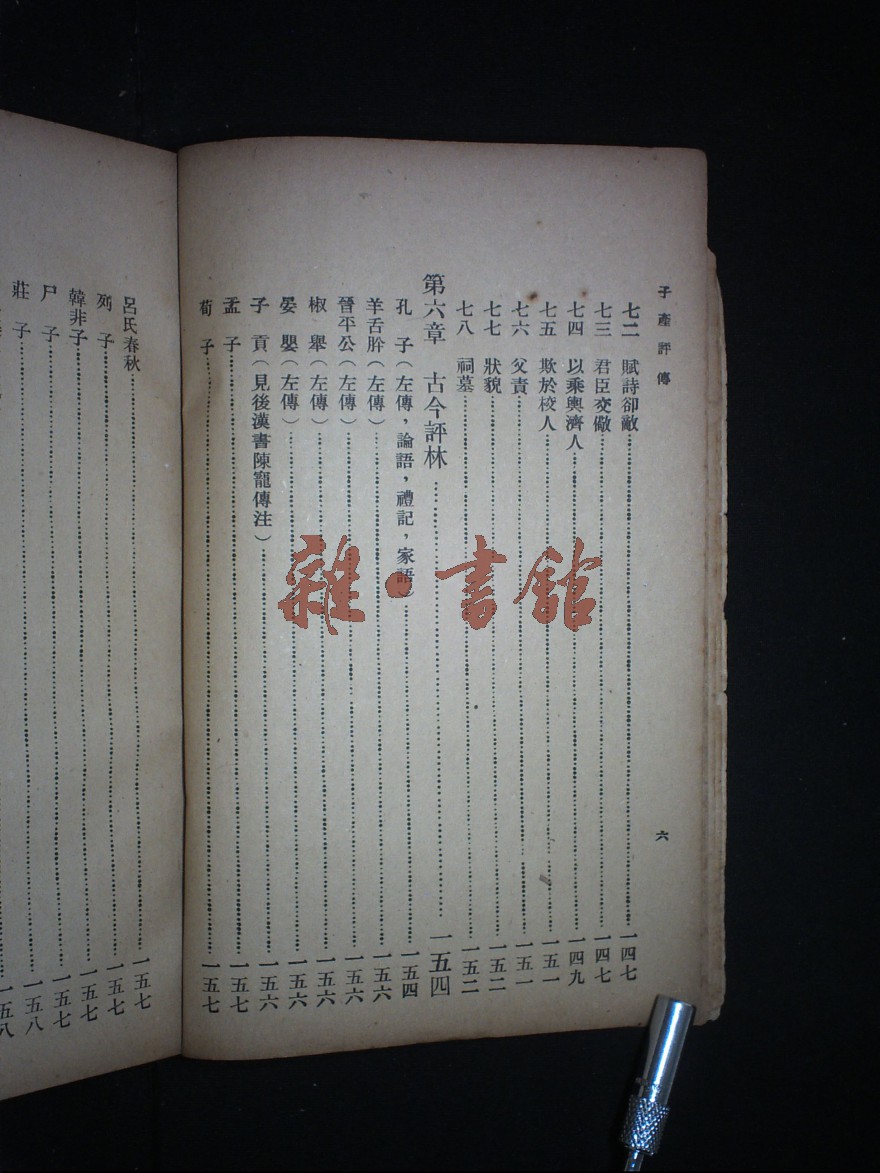 子產評傳
六
七二 賦詩卻敵⋯⋯一四七
七三 君臣交儆⋯⋯一四七
七四 以乘輿濟人⋯⋯一四九
七五 欺於校人⋯⋯一五一
七六 父責⋯⋯一五一
七七 狀貌⋯⋯一五二
七八 祠墓⋯⋯一五二
第六章 古今評林⋯⋯一五四
孔 子（左傳，論語，禮記，家語）⋯⋯一五四
羊舌肸（左傳）⋯⋯一五六
晉平公（左傳）⋯⋯一五六
椒 舉（左傳）⋯⋯一五六
晏 嬰（左傳）⋯⋯一五六
子 貢（見後漢書陳寵傳注）⋯⋯一五六
孟 子⋯⋯一五七
荀 子⋯⋯一五七
呂氏春秋⋯⋯一五七
列 子⋯⋯一五七
韓非子⋯⋯一五七
尸 子⋯⋯一五七
莊 子⋯⋯一五八
一五八
雜·書館